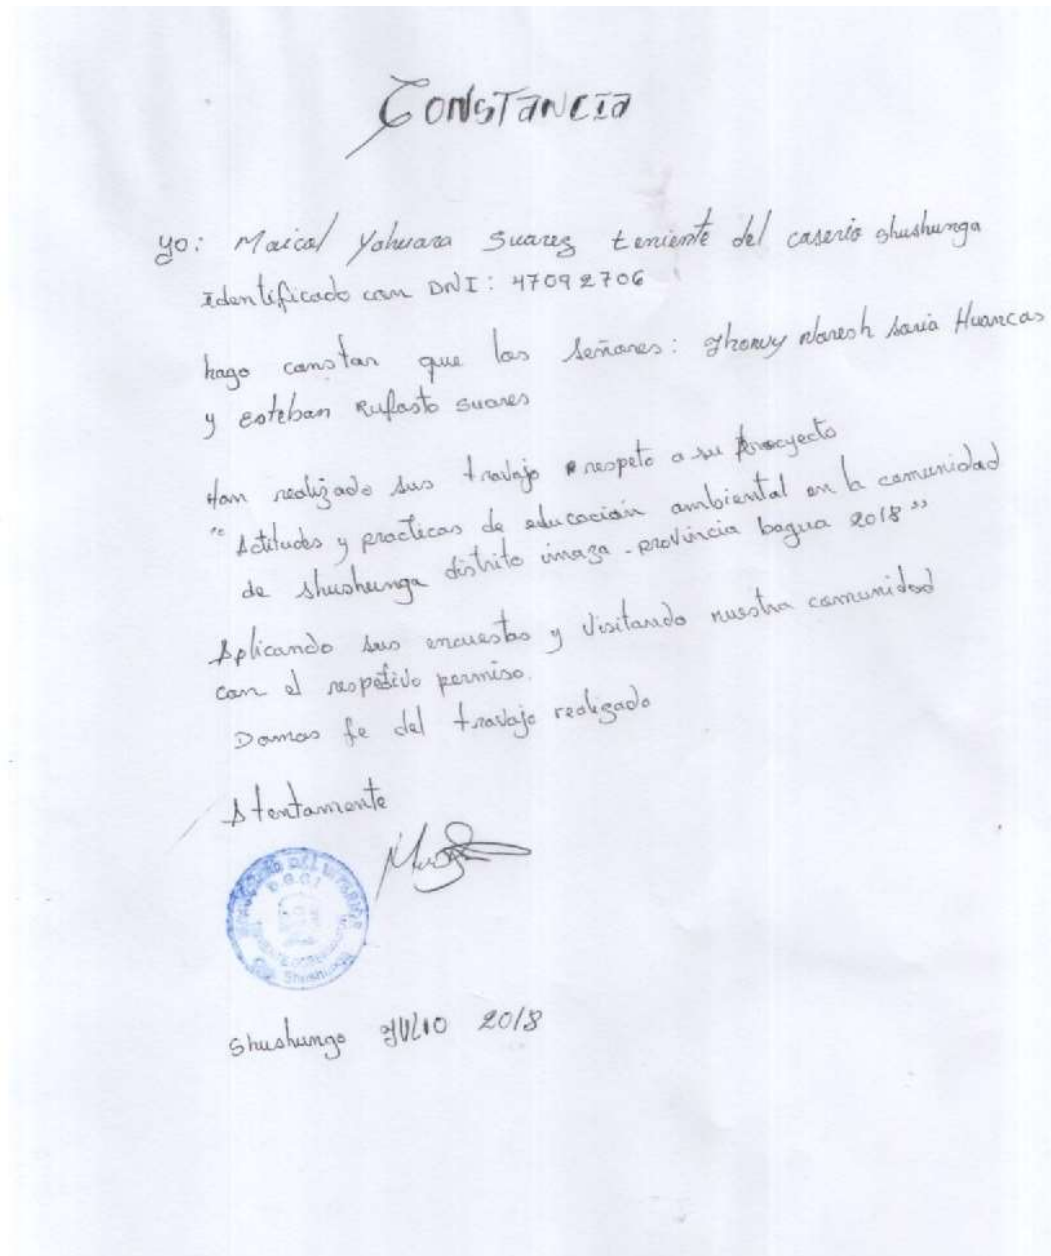 Constancia
yo: Maical Yahuara Suarez teniente del caserio shushunga
Identificado con DNI: 47092706
hago constar que los señores: Jhonvy Naresh Saria Huancas
y esteban Rufasto suares
Han realizado sus travajo respeto a su proecyecto
"Actitudes y practicas de educación ambiental en la comunidad
de shushunga distrito imaza - provincia bagua 2018"
Aplicando sus encuestas y visitando nuestra comunidad
con el respetivo permiso.
Damos fe del travajo realizado
Atentamente
DEL INTERIOR
Shushunga
Shushunga JULIO 2018